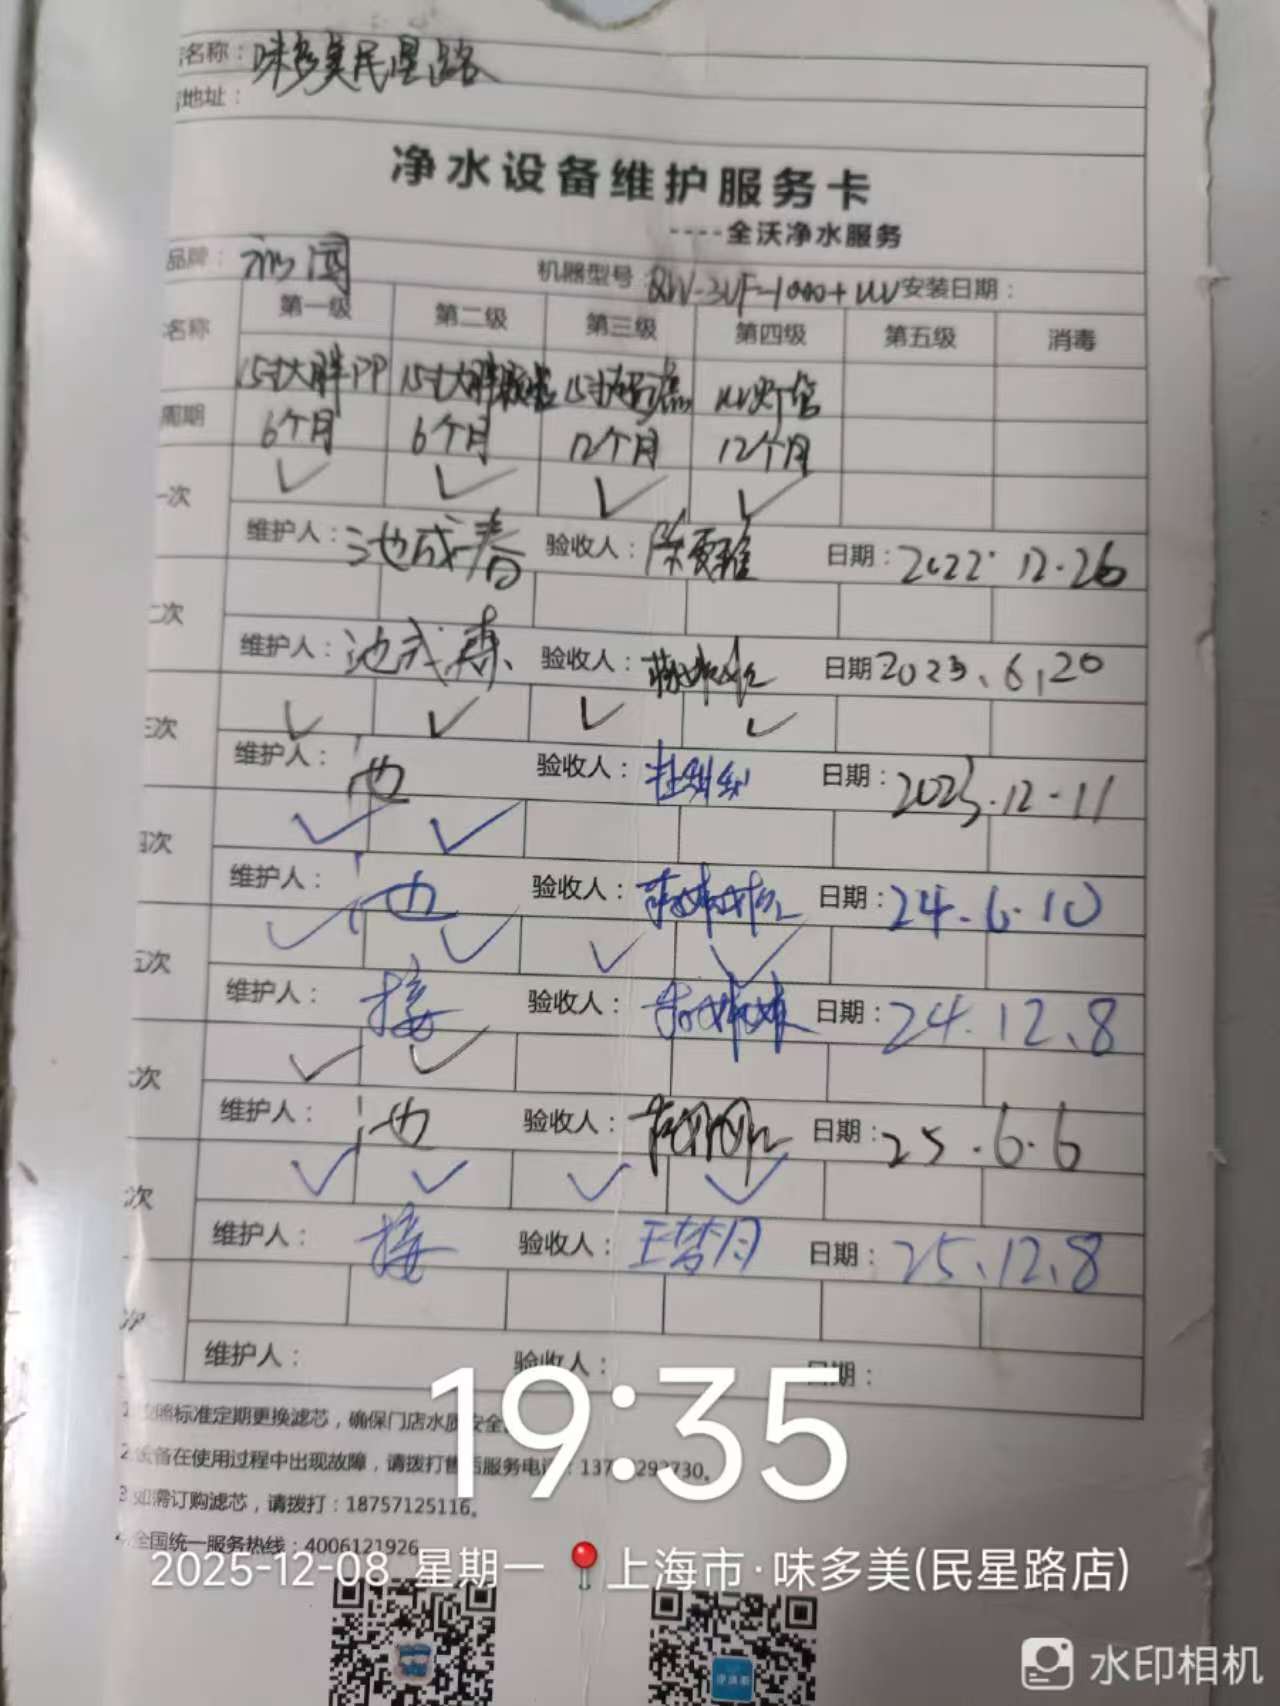 名称：味多美民星路
地址：
净水设备维护服务卡
----全沃净水服务
品牌： 机器型号：QW-3UF-1000+UV 安装日期：
名称 第一级 第二级 第三级 第四级 第五级 消毒
15寸大胖PP 15寸大胖 15寸超滤 UV灯管
周期 6个月 6个月 12个月 12个月
一次 ✓ ✓ ✓ ✓
维护人：池成春 验收人： 日期：2022.12.26
二次
维护人：池成春 验收人： 日期 2023、6,20
三次 ✓ ✓ ✓ ✓
维护人：池 验收人： 日期：2023.12-11
四次 ✓ ✓
维护人：池 验收人： 日期：24.6.10
五次 ✓ ✓ ✓ ✓
维护人：接 验收人： 日期：24.12、8
次 ✓ ✓
维护人：池 验收人： 日期：25.6.6
次 ✓ ✓ ✓ ✓
维护人：接 验收人：王梦月 日期：25、12、8
维护人： 验收人： 日期：
19:35
1.按照标准定期更换滤芯，确保门店水质安全
2.设备在使用过程中出现故障，请拨打售后服务电话：
3.如需订购滤芯，请拨打：18757125116。
4.全国统一服务热线：4006121926
2025-12-08 星期一 上海市·味多美(民星路店)
水印相机